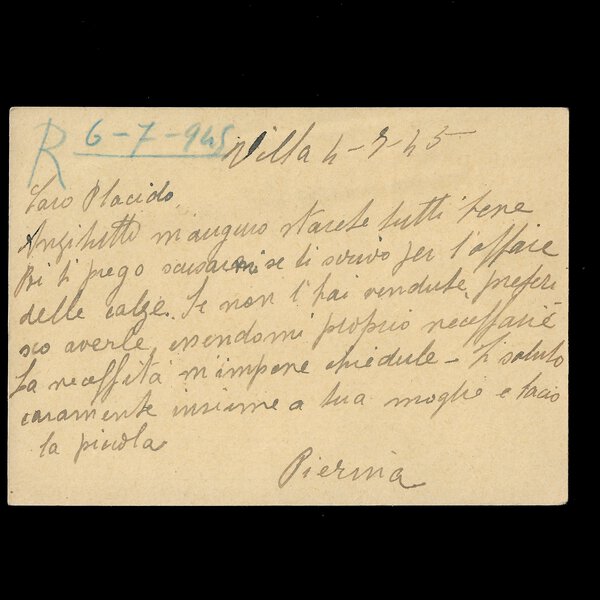 R 6-7-945
Villa 4-7-45
Caro Placido
Anzitutto m'auguro starete tutti bene
Poi ti prego scusarmi se ti scrivo per l'affare
delle calze. Se non l'hai vendute, preferi
sco averle, essendomi proprio necessarie
La necessità m'impone chiedule - Ti saluto
caramente insieme a tua moglie e bacio
la piccola
Pierina